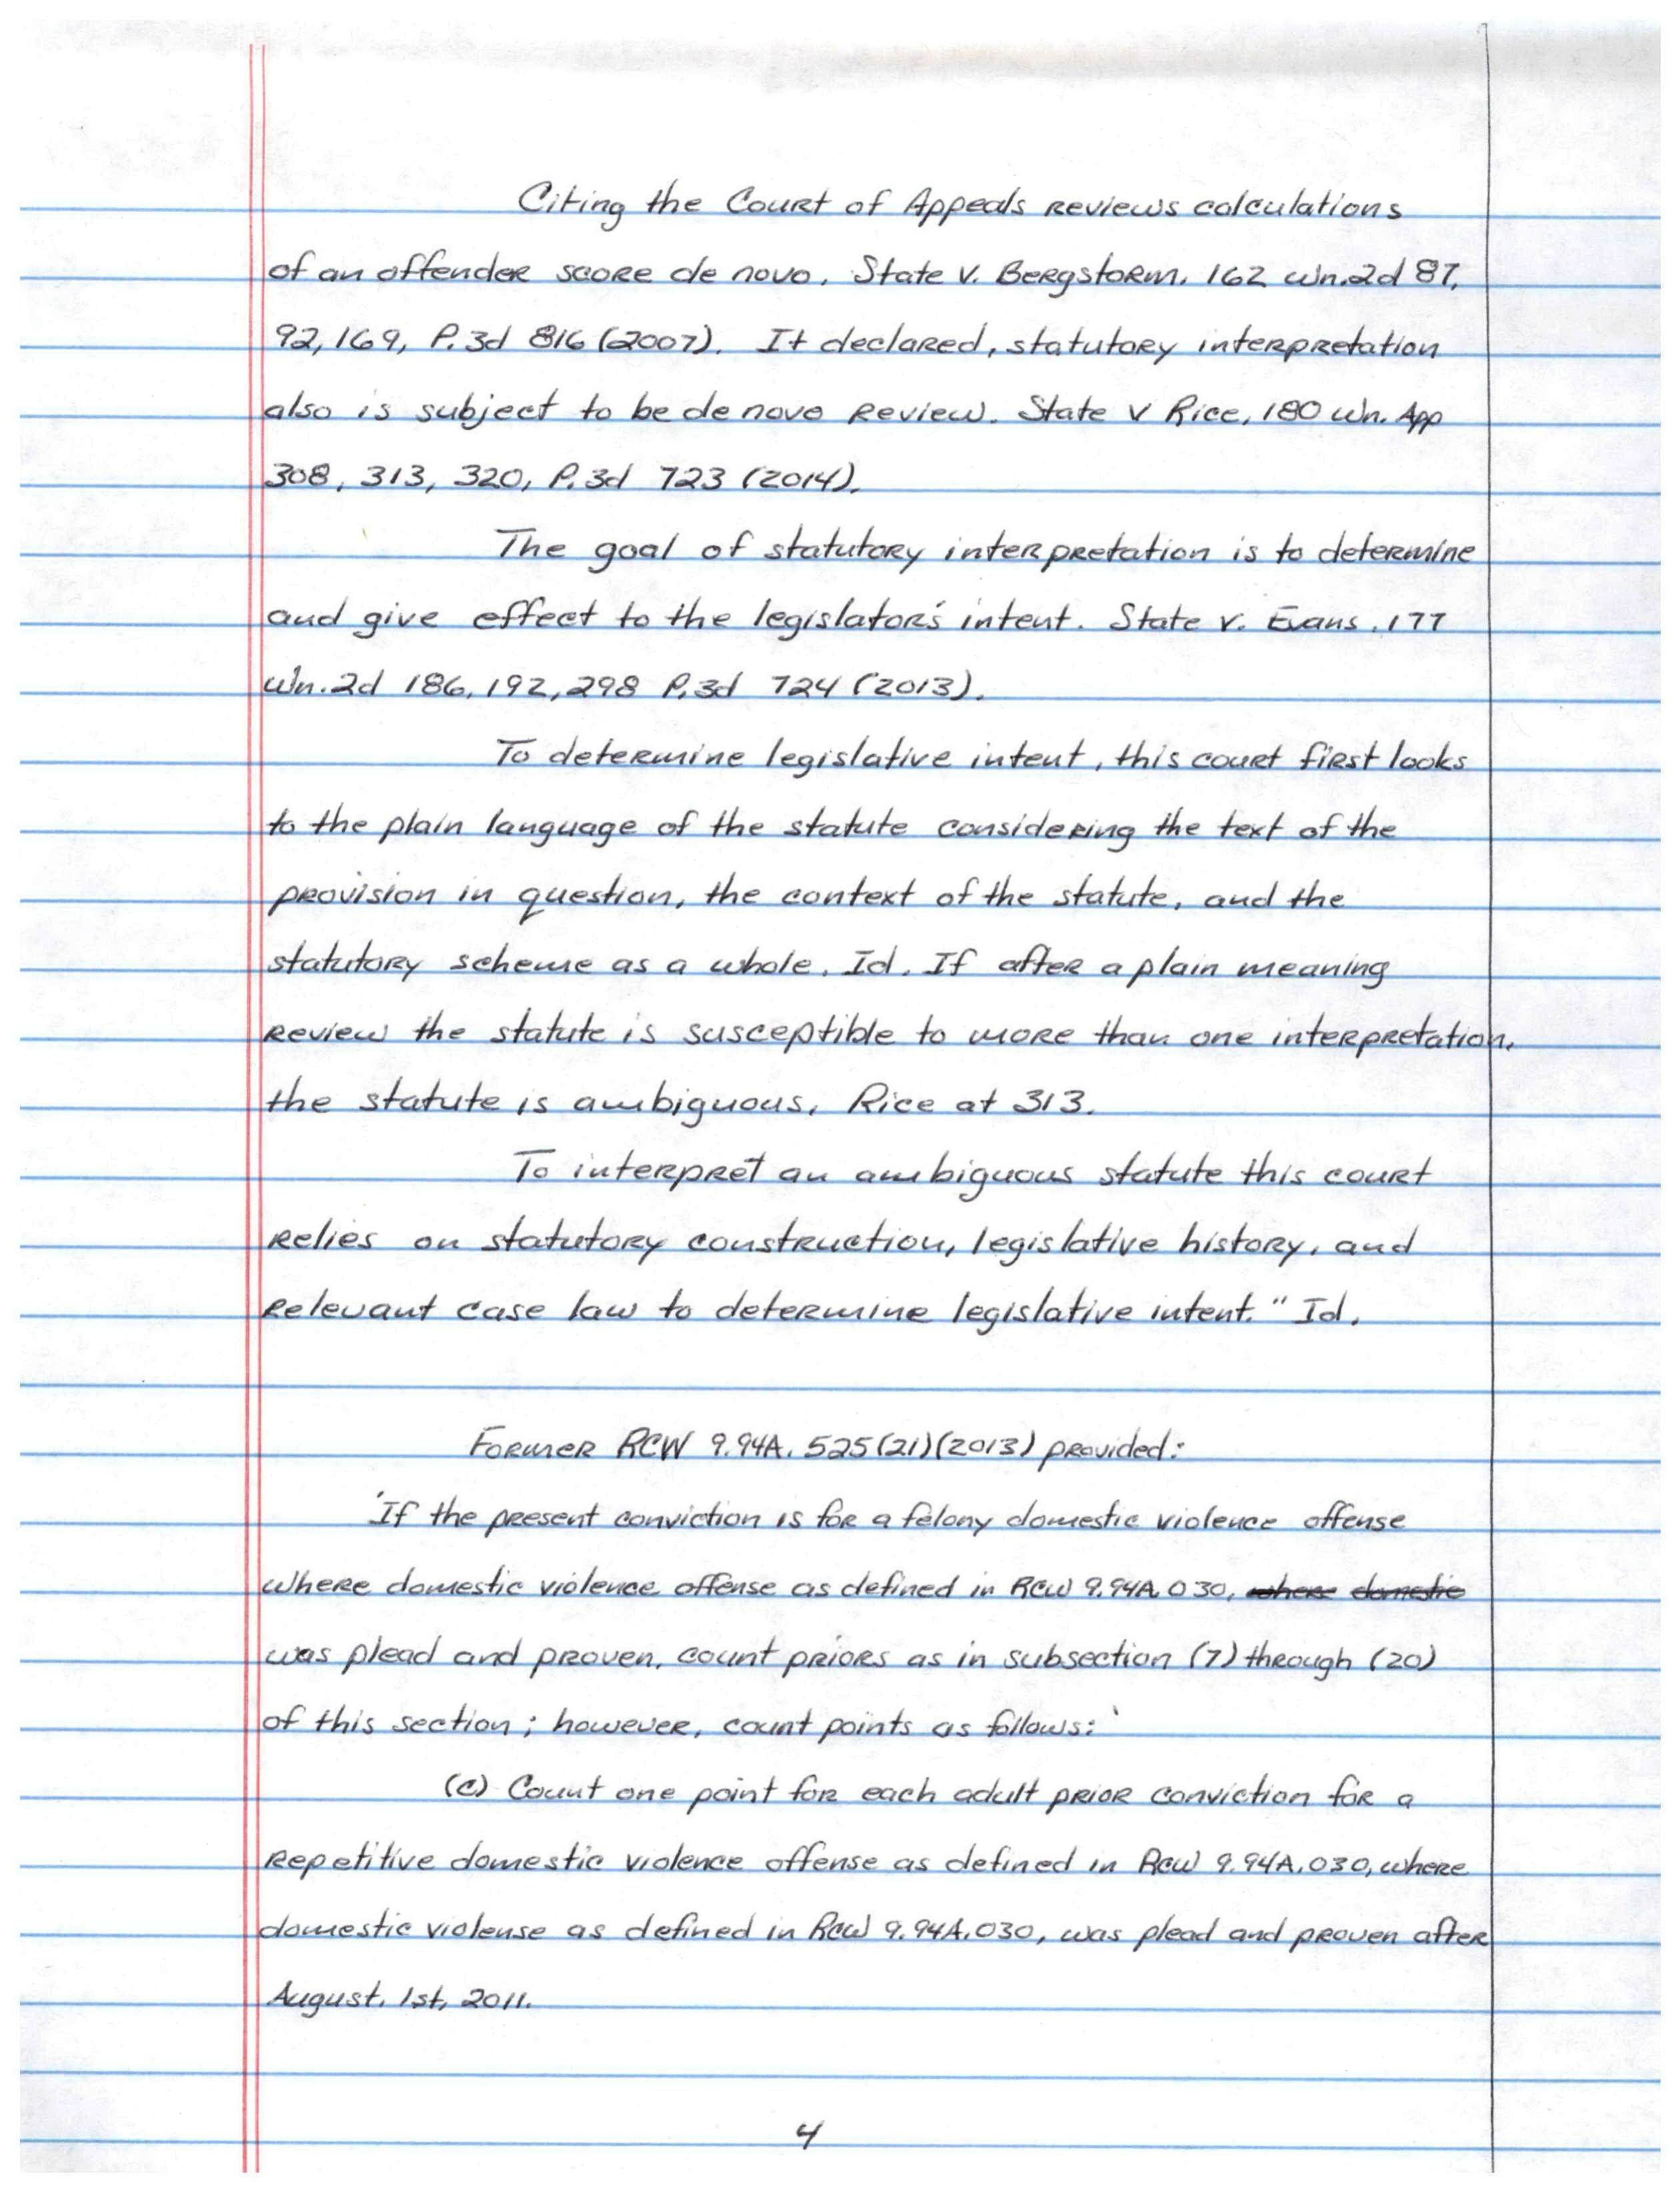 Citing the Court of Appeals reviews calculations
of an offender score de novo. State v. Bergstorm. 162 Wn.2d 87,
92,169, P.3d 816 (2007). It declared, statutory interpretation
also is subject to be de novo review. State v Rice, 180 Wn. App
308, 313, 320, P.3d 723 (2014).
The goal of statutory interpretation is to determine
and give effect to the legislator's intent. State v. Evans, 177
Wn.2d 186, 192, 298 P.3d 724 (2013).
To determine legislative intent, this court first looks
to the plain language of the statute considering the text of the
provision in question, the context of the statute, and the
statutory scheme as a whole. Id. If after a plain meaning
review the statute is susceptible to more than one interpretation,
the statute is ambiguous. Rice at 313.
To interpret an ambiguous statute this court
relies on statutory construction, legislative history, and
relevant case law to determine legislative intent." Id.
Former RCW 9.94A.525(21)(2013) provided:
'If the present conviction is for a felony domestic violence offense
where domestic violence offense as defined in RCW 9.94A.030, where domestic
was plead and proven, count priors as in subsection (7) through (20)
of this section; however, count points as follows:'
(c) Count one point for each adult prior conviction for a
repetitive domestic violence offense as defined in RCW 9.94A.030, where
domestic violense as defined in RCW 9.94A.030, was plead and proven after
August. 1st, 2011.
4